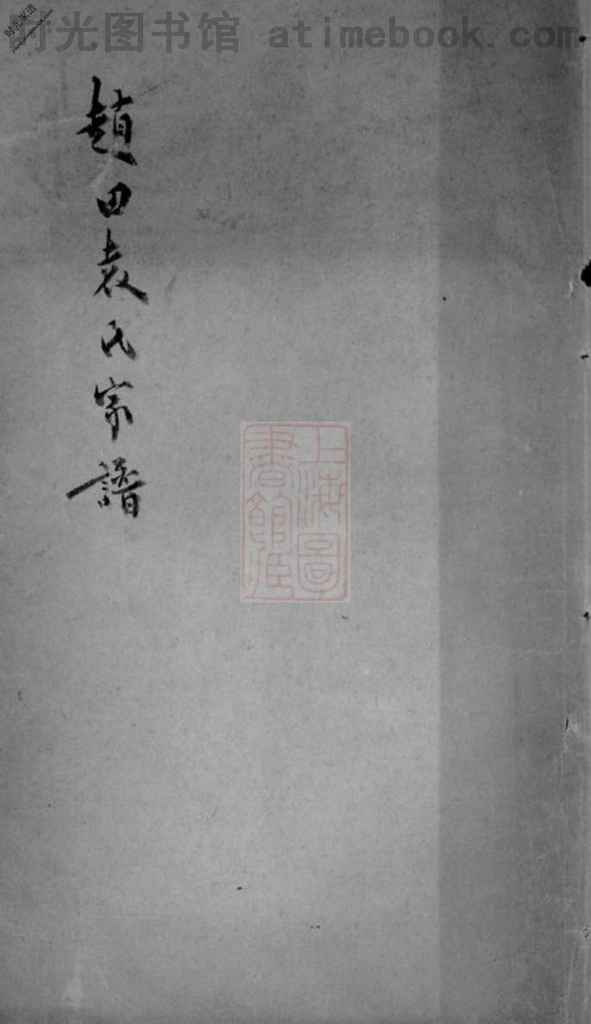 时光图书馆 atimebook.com
趙田袁氏宗譜
上海圖
書館藏